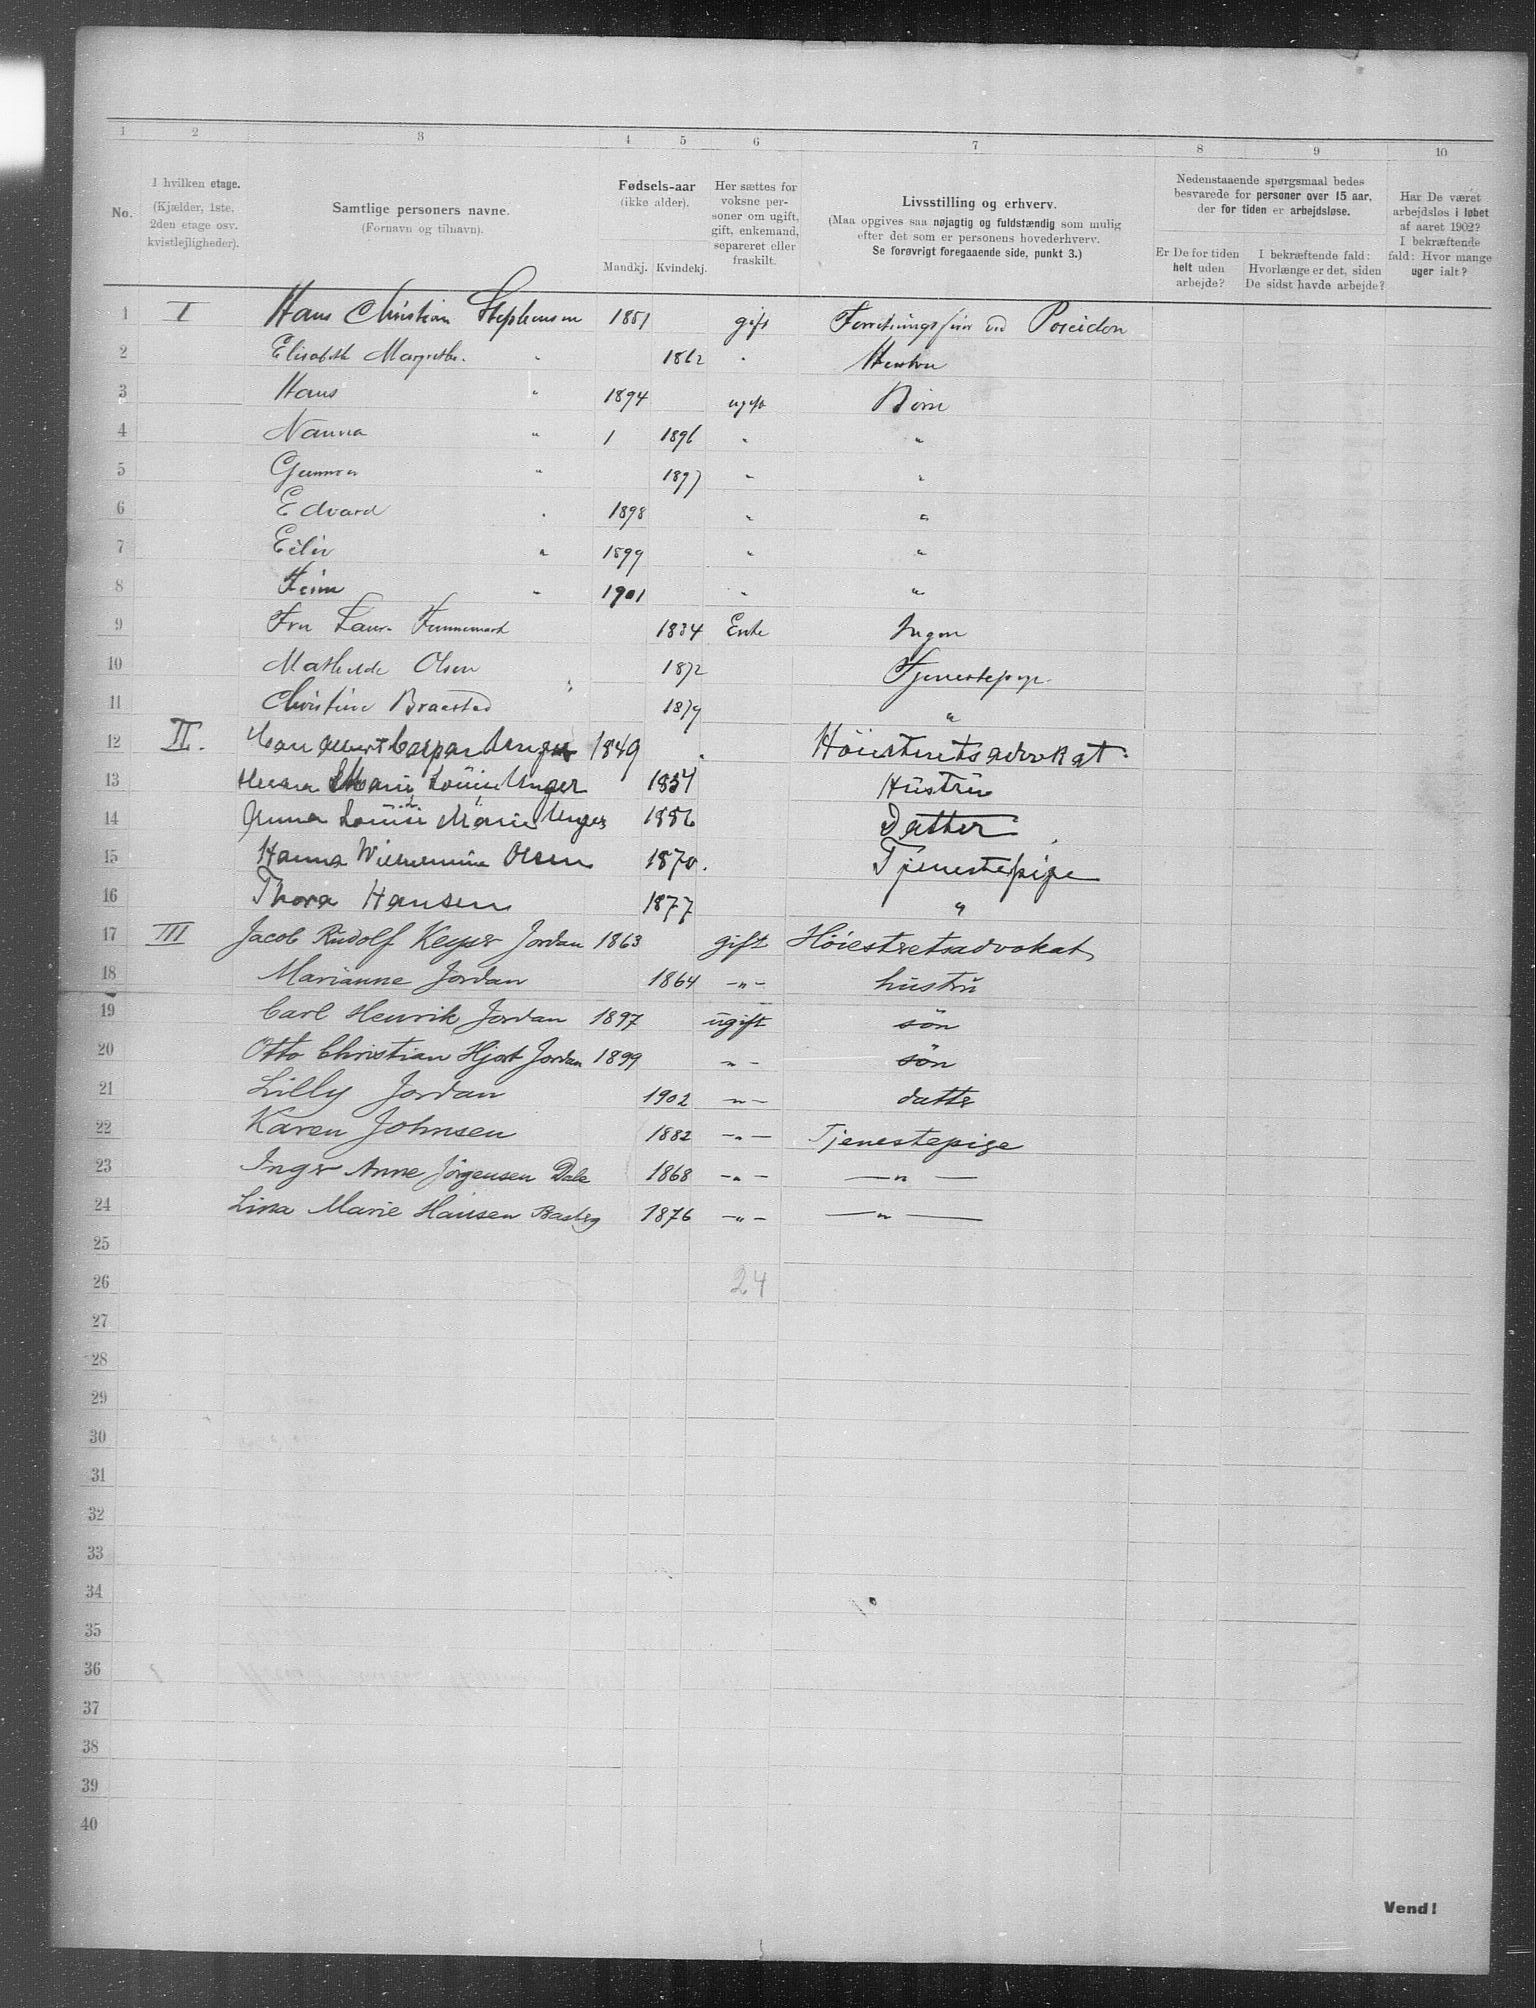 1 2 3 4 5 6 7 8 9 10
No.
I hvilken etage. (Kjælder, 1ste, 2den etage osv. kvistlejligheder).
Samtlige personers navne. (Fornavn og tilnavn).
Fødsels-aar (ikke alder).
Mandkj. Kvindekj.
Her sættes for voksne personer om ugift, gift, enkemand, separeret eller fraskilt.
Livsstilling og erhverv. (Maa opgives saa nøjagtig og fuldstændig som mulig efter det som er personens hovederhverv. Se forøvrigt foregaaende side, punkt 3.)
Nedenstaaende spørgsmaal bedes besvarede for personer over 15 aar, der for tiden er arbejdsløse.
Er De for tiden helt uden arbejde?
I bekræftende fald: Hvorlænge er det, siden De sidst havde arbejde?
Har De været arbejdsløs i løbet af aaret 1902? I bekræftende fald: Hvor mange uger ialt?
1 I Hans Christian Stephensen 1851 gift Poseidon
2 Elisabeth Margrethe " 1862 " Hustru
3 Hans " 1894 ugift Børn
4 Nanna " 1 1896 " "
5 " 1897 " "
6 Edvard " 1898 " "
7 Eiliv " 1899 " "
8 " 1901 " "
9 Fru 1834 Enke Ingen
10 Mathilde Olsen 1872 Tjenestepige
11 Christine Braastad " 1879 "
12 II. Albert Caspar Unger 1849 " Höiesteretsadvokat.
13 Marie Louise Unger 1857 Hustru
14 Anna Louise Marie Unger 1886 Datter
15 Hanna Wilhelmine Olsen 1870. Tjenestepige
16 Thora Hansen 1877 "
17 III Jacob Rudolf Keyser Jordan 1863 gift Höiesteretsadvokat
18 Marianne Jordan 1864 -"- hustru
19 Carl Henrik Jordan 1897 ugift sön
20 Otto Christian Hjort Jordan 1899 -"- sön
21 Lilly Jordan 1902 -"- datter
22 Karen Johnsen 1882 -"- Tjenestepige
23 Inger Anne Jörgensen Dale 1868 -"- -"-
24 Lina Marie Hansen 1876 -"- -"-
25
26 24
27
28
29
30
31
32
33
34
35
36
37
38
39
40
Vend!